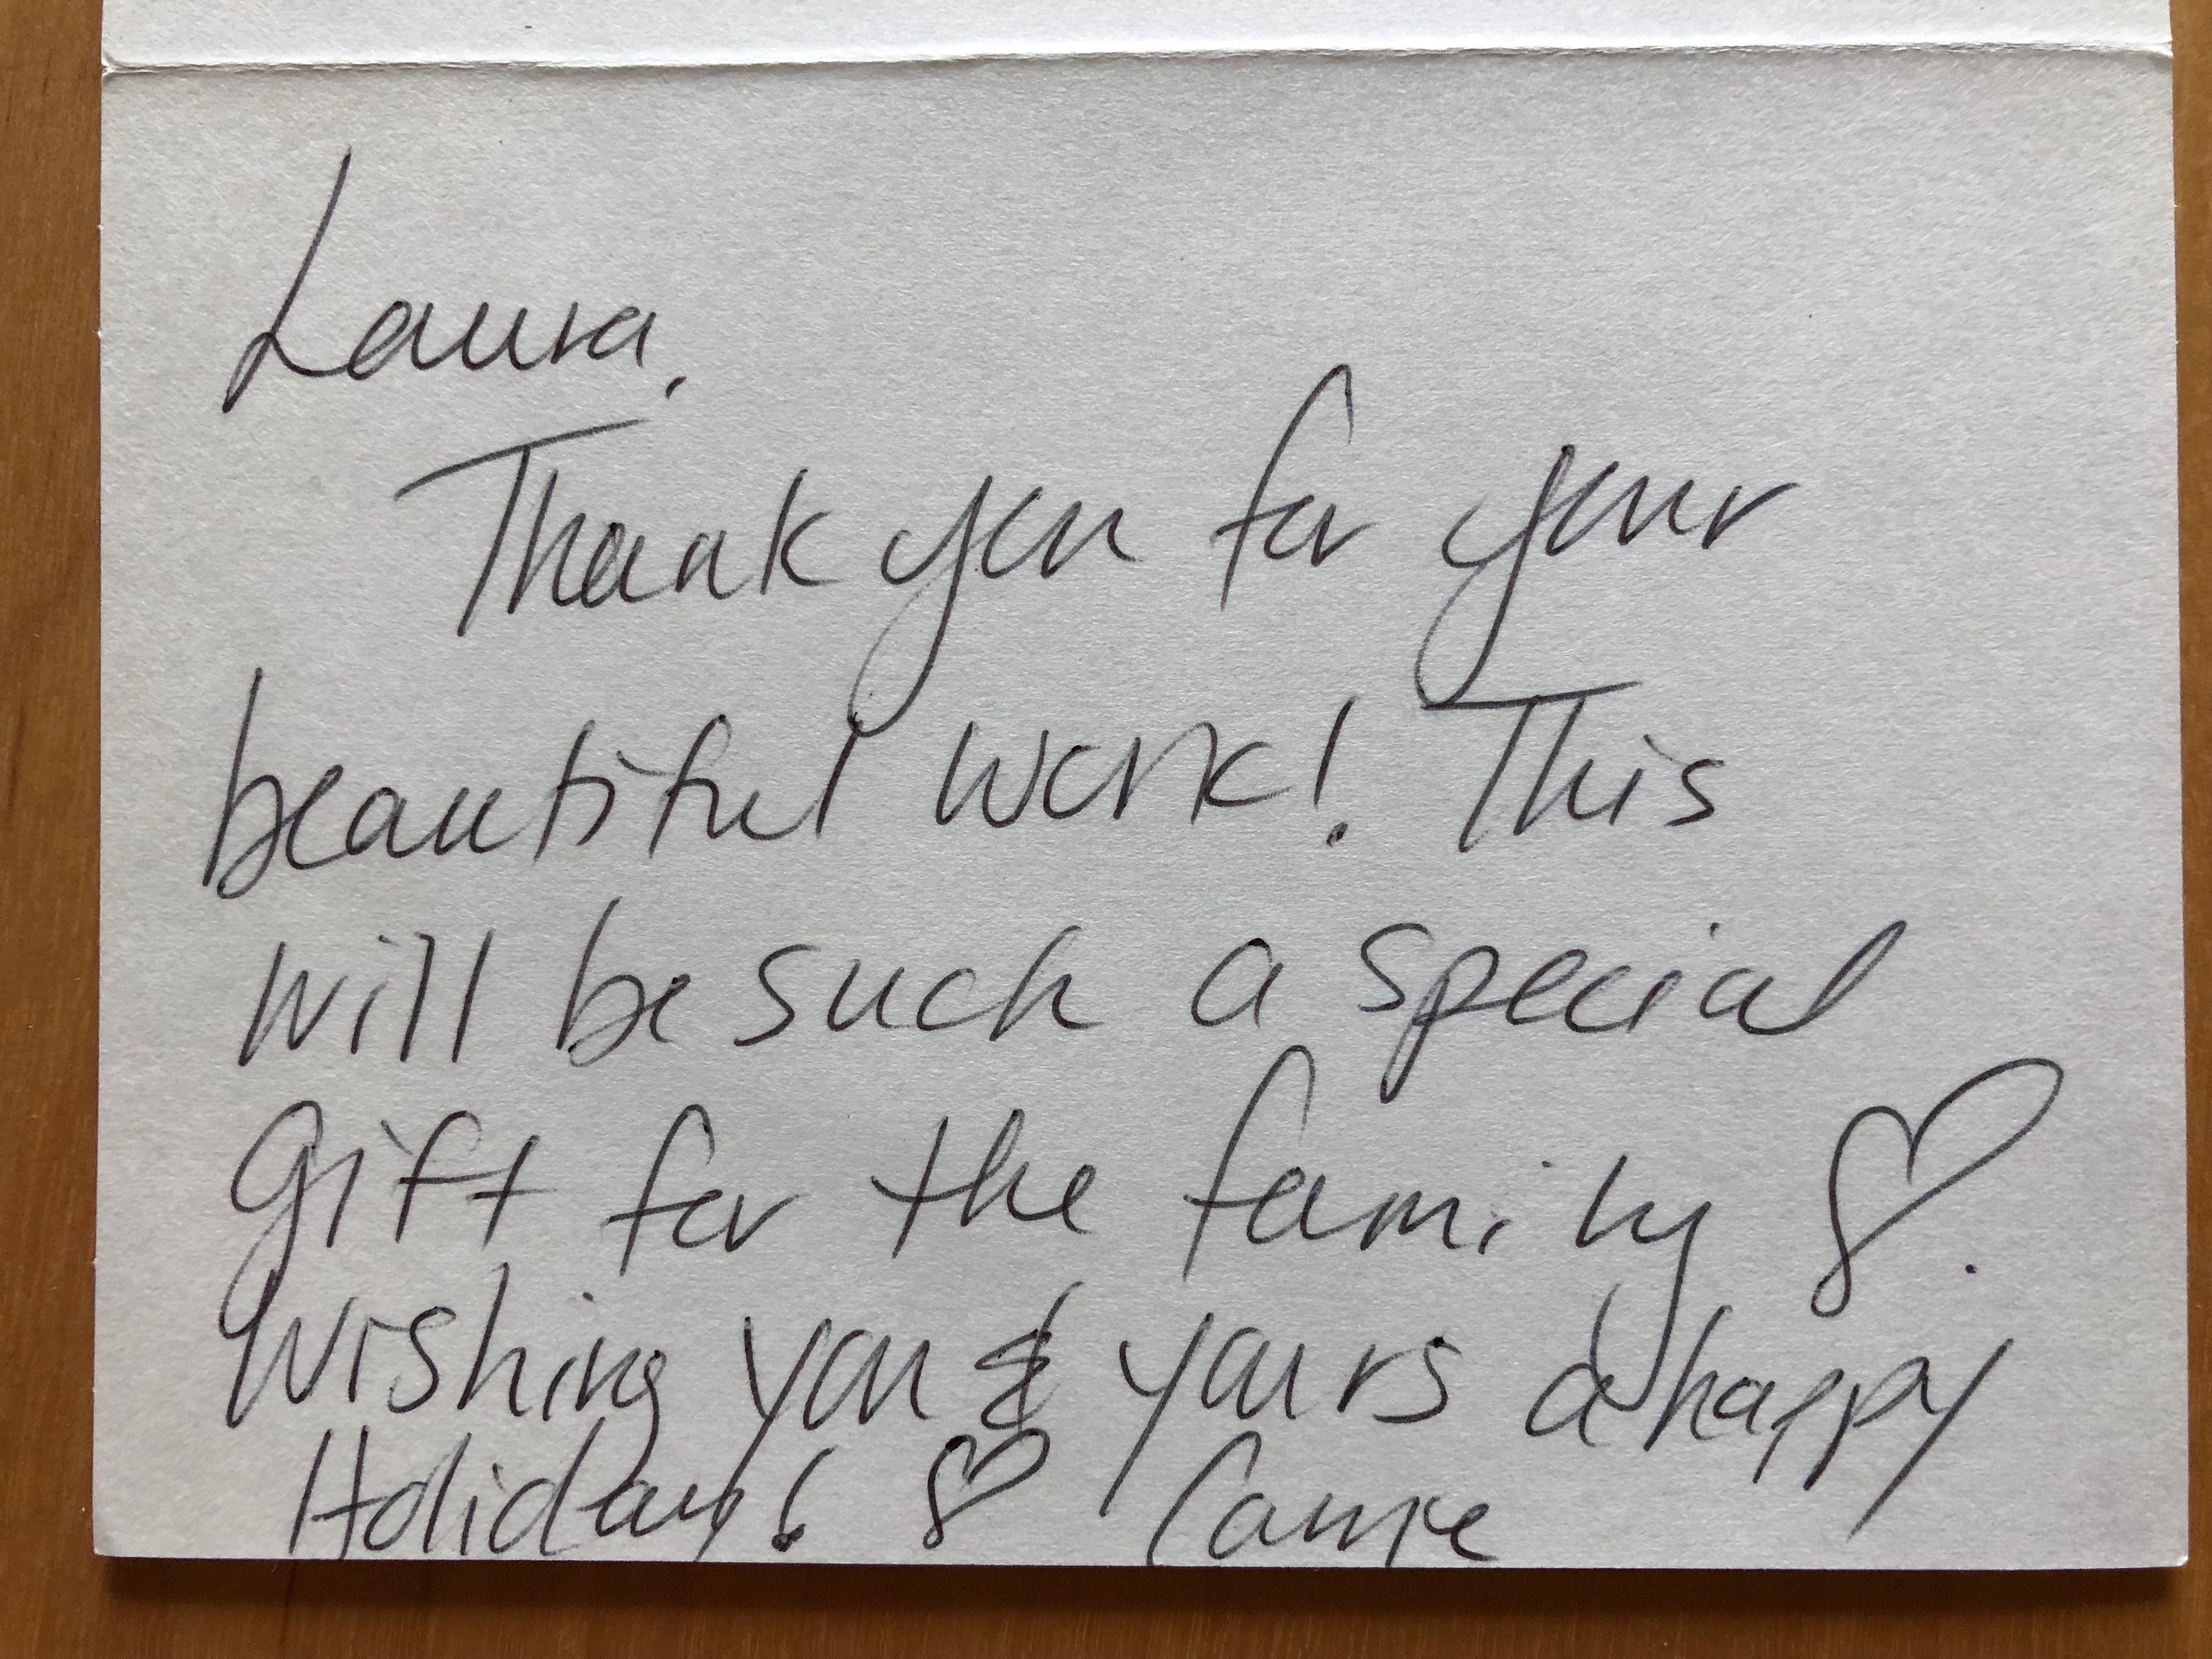 Laura,
Thank you for your
beautiful work! This
will be such a special
gift for the family ♡.
Wishing you & yours a happy
Holidays! ♡